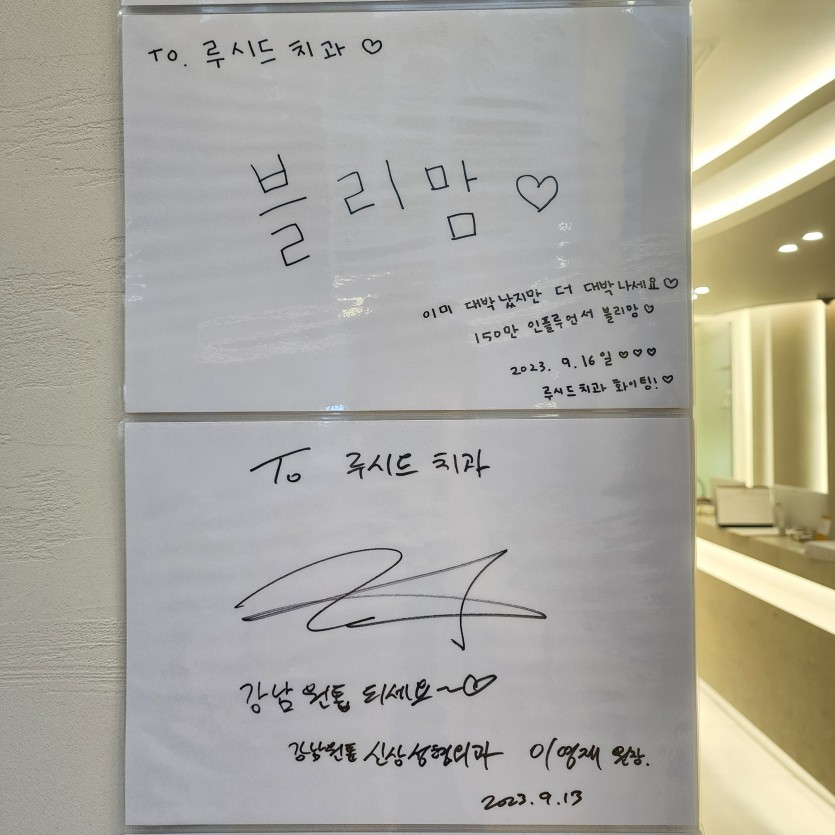 To. 루시드 치과 ♡
블리맘 ♡
이미 대박났지만 더 대박나세요♡
150만 인플루언서 블리맘♡
2023. 9.16일 ♡♡♡
루시드치과 화이팅!♡
To 루시드 치과
강남 원톱 되세요~♡
강남원톱 신상성형외과 이영재 원장.
2023.9.13